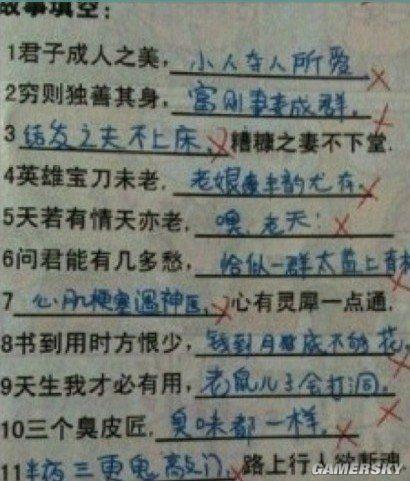 故事填空:
1君子成人之美, 小人夺人所爱
2穷则独善其身, 富则妻妾成群.
3 结发之夫不上床, 糟糠之妻不下堂.
4英雄宝刀未老, 老娘 丰韵尤存.
5天若有情天亦老, 嘿,老天!
6问君能有几多愁, 恰似一群太监上青
7 心肌梗塞遇神医, 心有灵犀一点通.
8书到用时方恨少, 钱到月 底不够花.
9天生我才必有用, 老鼠儿子会打洞.
10三个臭皮匠, 臭味都一样.
11半夜三更鬼敲门, 路上行人欲断魂
GAMERSKY